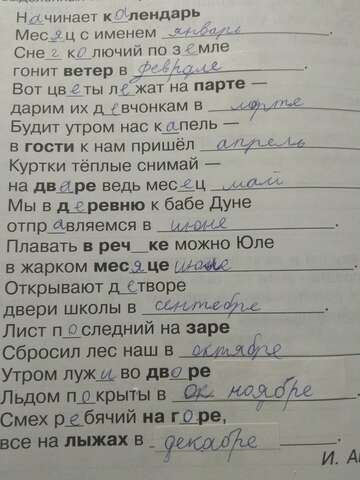 Начинает календарь
Месяц с именем январь.
Снег колючий по земле
гонит ветер в феврале.
Вот цветы лежат на парте —
дарим их девчонкам в марте.
Будит утром нас капель —
в гости к нам пришёл апрель.
Куртки тёплые снимай —
на дваре ведь месец май.
Мы в деревню к бабе Дуне
отправляемся в июне.
Плавать в реч__ке можно Юле
в жарком месяце июле
Открывают детворе
двери школы в сентебре.
Лист последний на заре
Сбросил лес наш в октябре
Утром лужи во дворе
Льдом покрыты в ок ноябре
Смех ребячий на горе,
все на лыжах в декабре.